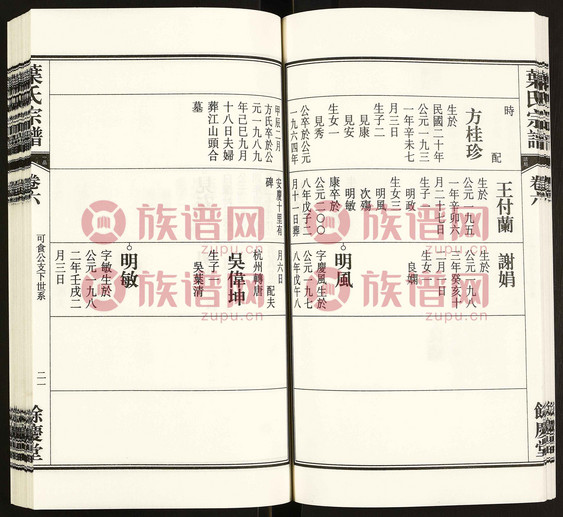 葉氏宗譜
卷六
餘慶堂
時
配
方桂珍
生於
民國二十年
公元一九三
一年辛未七
月三日
生子二
見康
見安
生女一
見秀
公卒於公元
一九六四年
甲辰二月
方氏卒於公
元一九八九
年己巳九月
十八日夫婦
葬江山頭合
墓
王付蘭
生於
公元一九五
一年辛卯六
月二十七日
生子一
明政
生女三
明風
次殤
明敏
康卒於
公元二〇〇
八年戊子二
月十一日葬
安慶十里有
碑
謝娟
生於
公元一九八
三年癸亥十
二月一日
生女一
良嫻
明風
字慶風生於
公元一九七
八年戊午八
月六日
配夫
吳偉坤
杭州轉唐
生子一
吳葉清
明敏
字敏生於
公元一九八
二年壬戌二
月三日
葉氏宗譜
卷六
可食公支下世系
二一
餘慶堂
族谱网
zupu.cn
族谱网
zupu.cn
族谱网
zupu.cn
族谱网
zupu.cn